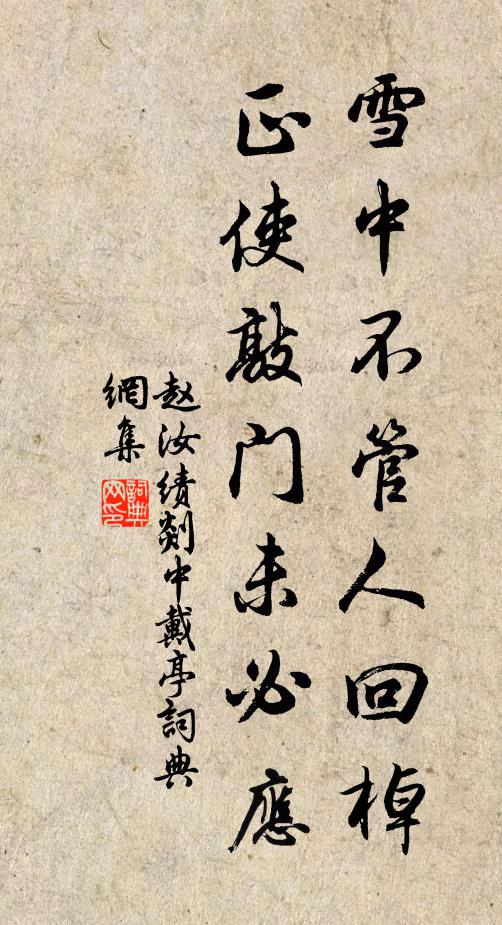 雪中不管人回棹
正使敲门未必應
赵汝绩剡中戴亭詞典
網集
詞典
网印